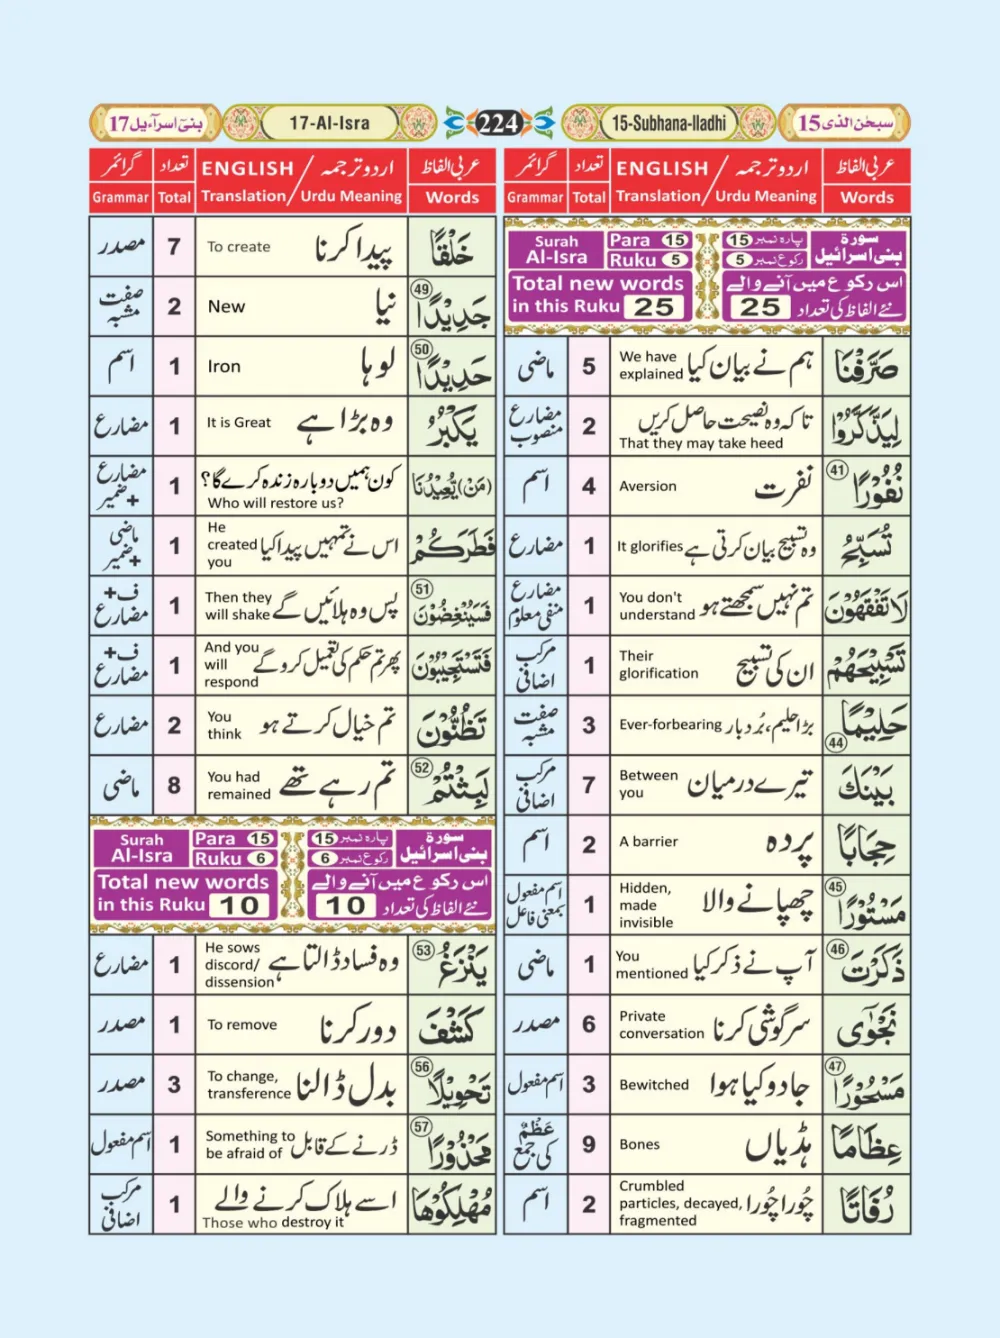 سبحٰن الذی 15
15-Subhana-lladhi
224
17-Al-Isra
بنیٓ اسرآءیل 17
عربی الفاظ اردو ترجمہ / ENGLISH تعداد گرائمر
Words Urdu Meaning / Translation Total Grammar
سورۃ بنی اسرائیل پارہ نمبر 15 رکوع نمبر 5
Surah Al-Isra Para 15 Ruku 5
اس رکوع میں آنے والے نئے الفاظ کی تعداد 25
Total new words in this Ruku 25
صَرَّفْنَا ہم نے بیان کیا We have explained 5 ماضی
لِيَذَّكَّرُوْا تاکہ وہ نصیحت حاصل کریں That they may take heed 2 مضارع منصوب
نُفُوْرًا 41 نفرت Aversion 4 اسم
تُسَبِّحُ وہ تسبیح بیان کرتی ہے It glorifies 1 مضارع
لَا تَفْقَهُوْنَ تم نہیں سمجھتے ہو You don't understand 1 مضارع منفی معلوم
تَسْبِيْحَهُمْ ان کی تسبیح Their glorification 1 مرکب اضافی
حَلِيْمًا 44 بڑا حلیم، بُردبار Ever-forbearing 3 صفت مشبہ
بَيْنَكَ تیرے درمیان Between you 7 مرکب اضافی
حِجَابًا پردہ A barrier 2 اسم
مَسْتُوْرًا 45 چھپانے والا Hidden, made invisible 1 اسم مفعول بمعنی فاعل
ذَكَرْتَ 46 آپ نے ذکر کیا You mentioned 1 ماضی
نَجْوٰٓى سرگوشی کرنا Private conversation 6 مصدر
مَسْحُوْرًا 47 جادو کیا ہوا Bewitched 3 اسم مفعول
عِظَامًا ہڈیاں Bones 9 عَظْمٌ کی جمع
رُفَاتًا چُورا چُورا Crumbled particles, decayed, fragmented 2 اسم
عربی الفاظ اردو ترجمہ / ENGLISH تعداد گرائمر
Words Urdu Meaning / Translation Total Grammar
خَلْقًا پیدا کرنا To create 7 مصدر
جَدِيْدًا 49 نیا New 2 صفت مشبہ
حَدِيْدًا 50 لوہا Iron 1 اسم
يَكْبُرُ وہ بڑا ہے It is Great 1 مضارع
(مَنْ) يُّعِيْدُنَا کون ہمیں دوبارہ زندہ کرے گا؟ Who will restore us? 1 مضارع + ضمیر
فَطَرَكُمْ اس نے تمہیں پیدا کیا He created you 1 ماضی + ضمیر
فَسَيُنْغِضُوْنَ 51 پس وہ ہلائیں گے Then they will shake 1 ف + مضارع
فَتَسْتَجِيْبُوْنَ پھر تم حکم کی تعمیل کرو گے And you will respond 1 ف + مضارع
تَظُنُّوْنَ تم خیال کرتے ہو You think 2 مضارع
لَبِثْتُمْ 52 تم رہے تھے You had remained 8 ماضی
سورۃ بنی اسرائیل پارہ نمبر 15 رکوع نمبر 6
Surah Al-Isra Para 15 Ruku 6
اس رکوع میں آنے والے نئے الفاظ کی تعداد 10
Total new words in this Ruku 10
يَنْزَغُ 53 وہ فساد ڈالتا ہے He sows discord/ dissension 1 مضارع
كَشْفَ دور کرنا To remove 1 مصدر
تَحْوِيْلًا 56 بدل ڈالنا To change, transference 3 مصدر
مَحْذُوْرًا 57 ڈرنے کے قابل Something to be afraid of 1 اسم مفعول
مُهْلِكُوْهَا اسے ہلاک کرنے والے Those who destroy it 1 مرکب اضافی